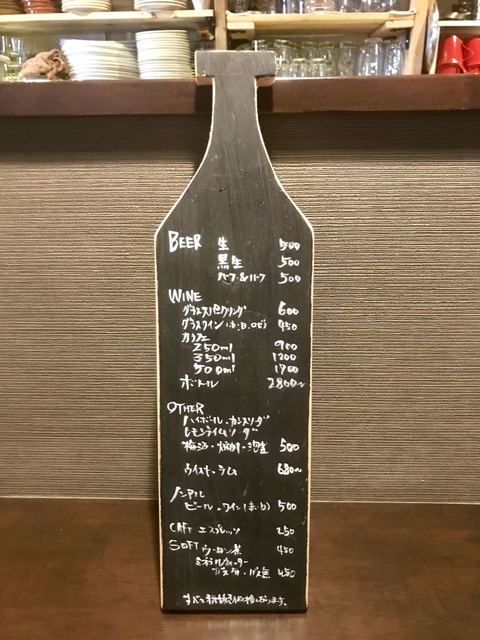 BEER 生 500
黒生 500
ハーフ&ハーフ 500
WINE
グラススパークリング 600
グラスワイン(赤.白.ロゼ) 450
カラフェ
250ml 900
350ml 1200
500ml 1700
ボトル 2800〜
OTHER
ハイボール・カシスソーダ
レモンライムソーダ
梅酒・焼酎・泡盛 500
ウイスキー・ラム 680〜
ノンアル
ビール・ワイン(赤・白) 500
CAFE エスプレッソ 250
SOFT ウーロン茶 450
ミネラルウォーター
ガス入・ガス無 450
すべて税抜